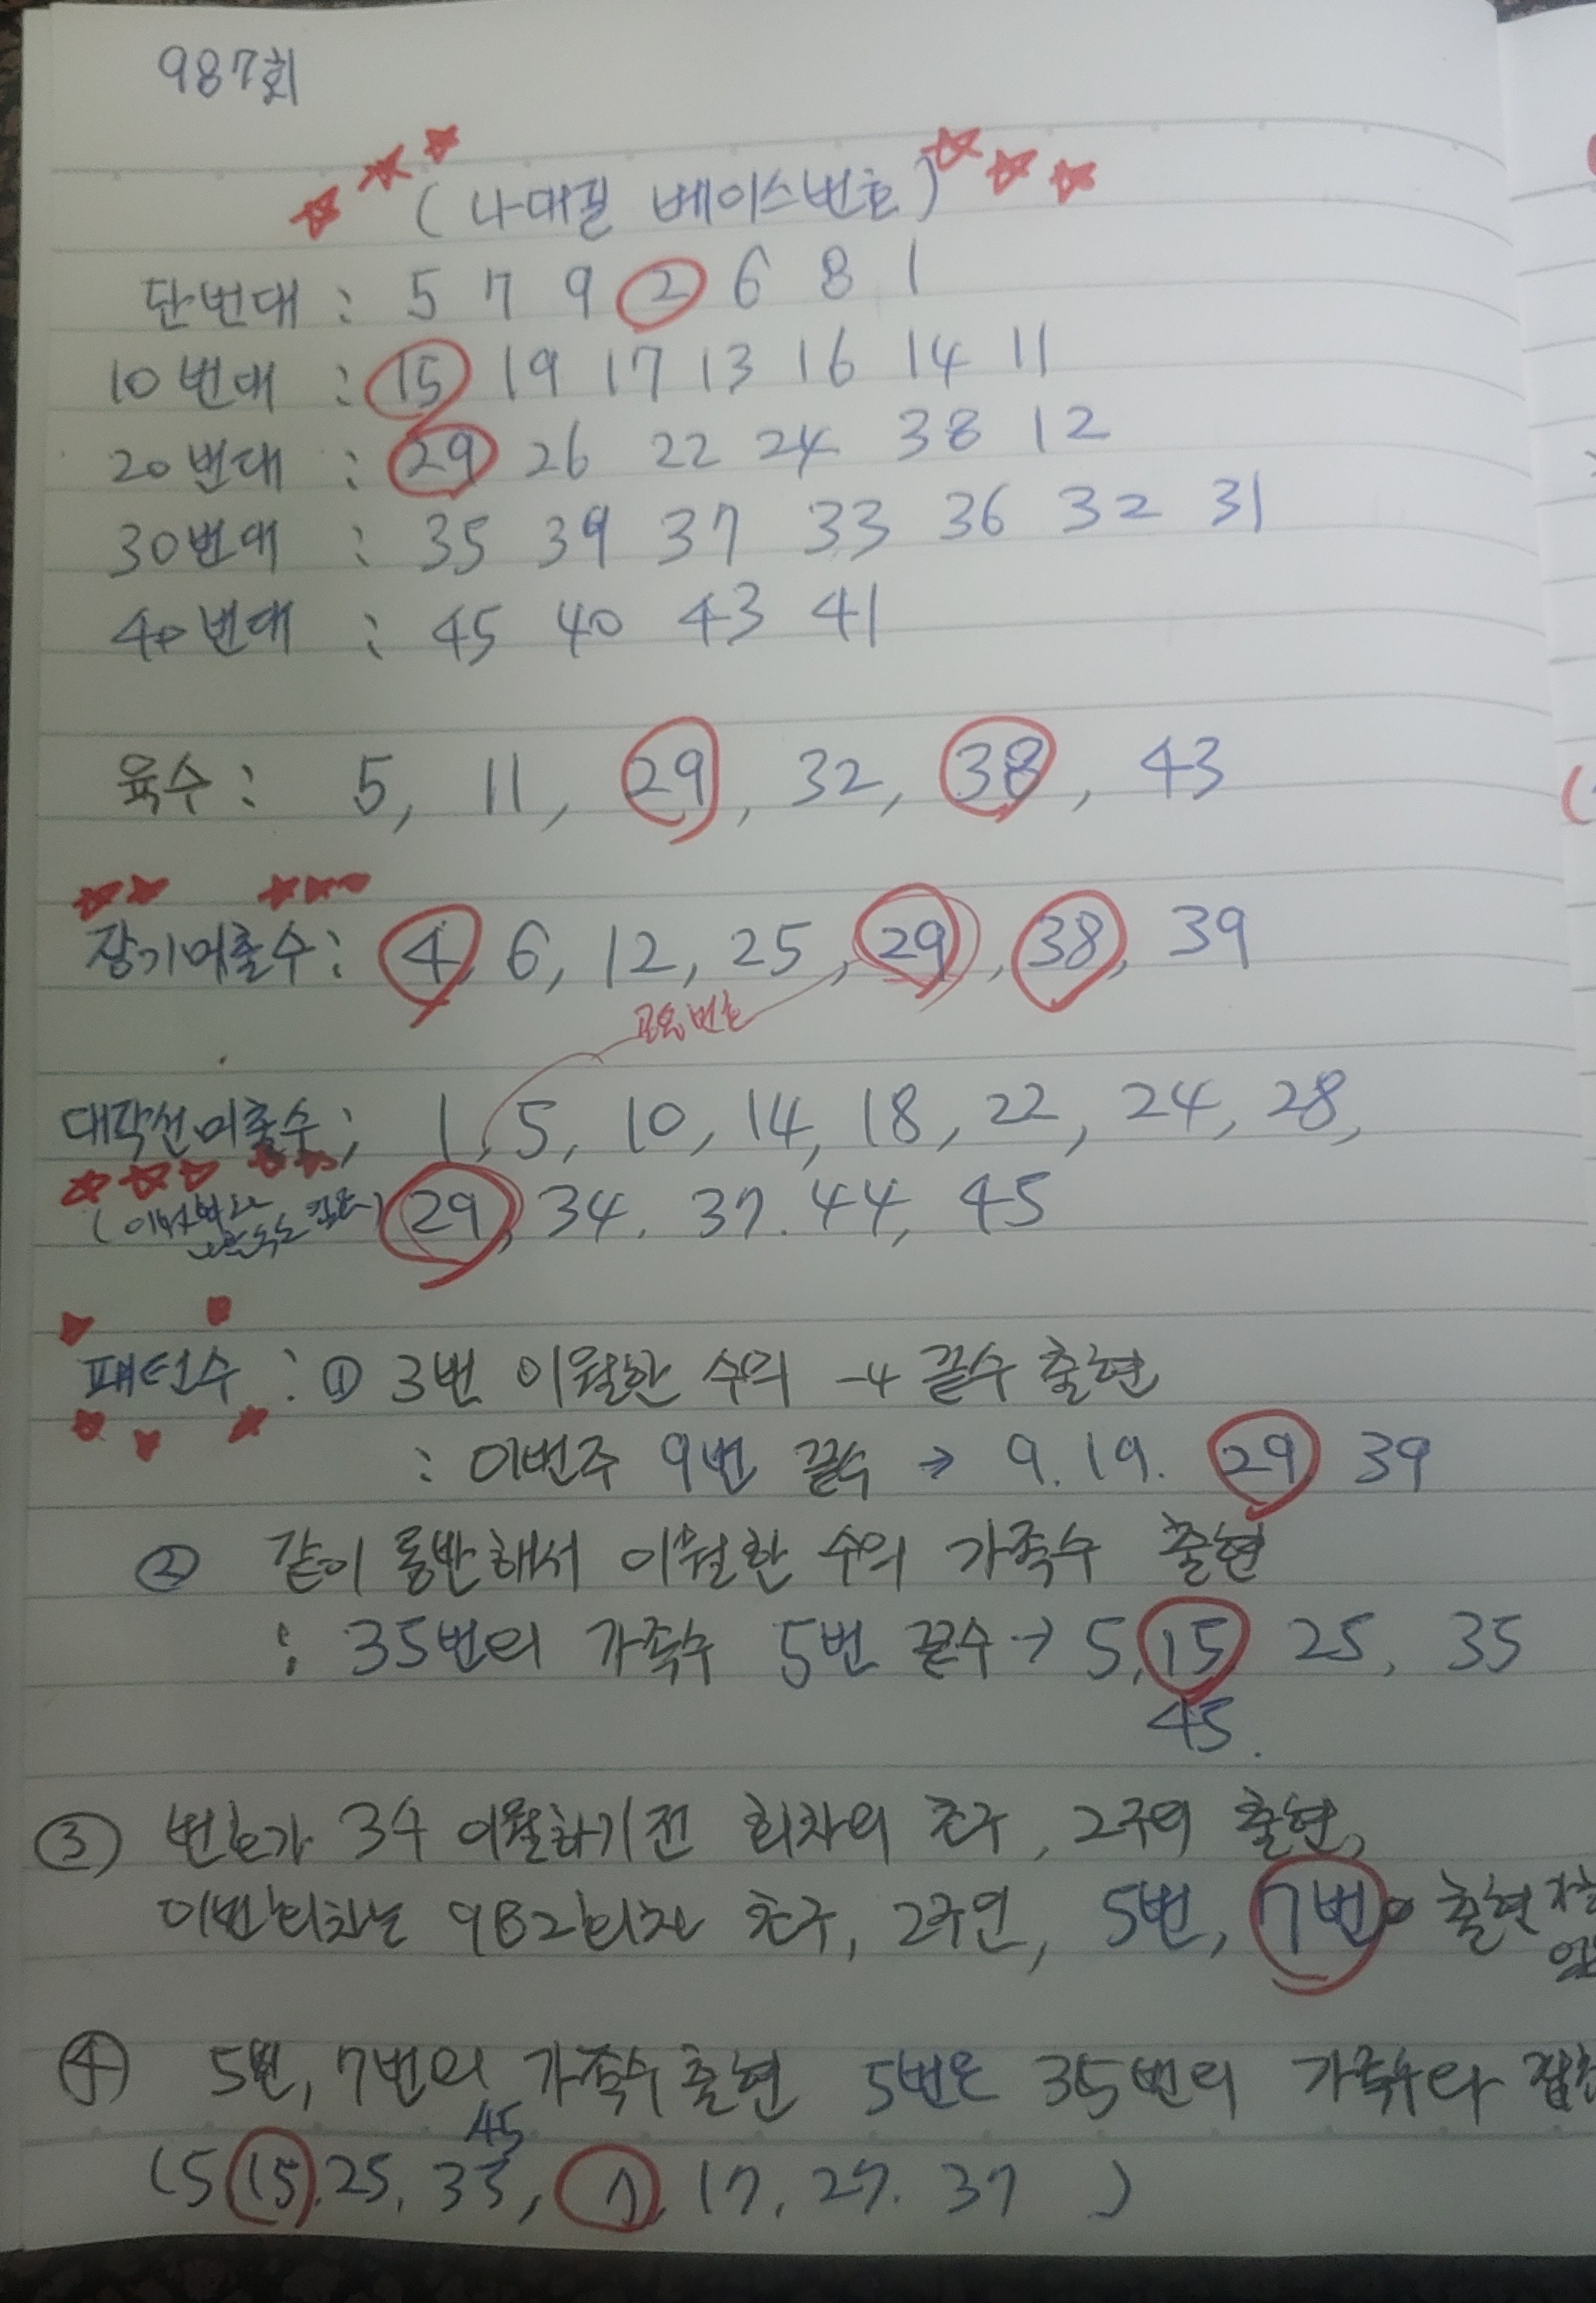 987회
(나대길 베이스번호)
단번대 : 5 7 9 2 6 8 1
10번대 : 15 19 17 13 16 14 11
20번대 : 29 26 22 24 38 12
30번대 : 35 39 37 33 36 32 31
40번대 : 45 40 43 41
육수 : 5, 11, 29, 32, 38, 43
장기미출수 : 4, 6, 12, 25, 29, 38, 39
대각선미출수 ; 1, 5, 10, 14, 18, 22, 24, 28,
29, 34. 37. 44, 45
패턴수 : ① 3번 이월한 수의 -4 끝수 출현
: 이번주 9번 끝수 → 9. 19. 29 39
② 같이 동반해서 이월한 수의 가족수 출현
: 35번의 가족수 5번 끝수 → 5, 15 25, 35
45.
③ 번호가 3수 이월하기전 회차의 초구, 2구의 출현,
이번회차는 982회차 초구, 2구인, 5번, 7번 출현
④ 5번, 7번의 가족수 출현 5번은 35번의 가족수와
45
(5 15. 25. 35, 7, 17, 27. 37 )